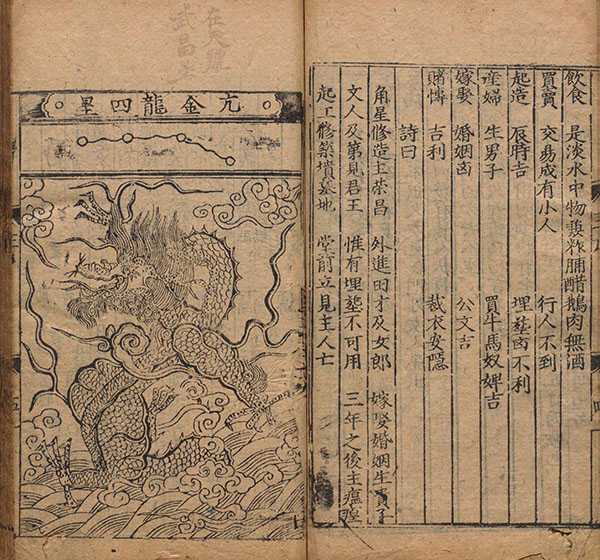 飲食 是淡水中物麥粆脯醋鵝肉無酒
買賣 交易成有小人 行人不到
起造 辰時吉 埋塟凶不利
産婦 生男子 買牛馬奴婢吉
嫁娶 婚姻凶 公文吉
賭愽 吉利 裁衣安隱
詩曰
角星修造主榮昌 外進田才及女郎 嫁娶婚姻生貴子
文人及第見君王 惟有埋塟不可用 三年之後主瘟
起工修築墳墓地 堂前立見主人亡
在天
武昌
亢金龍四星